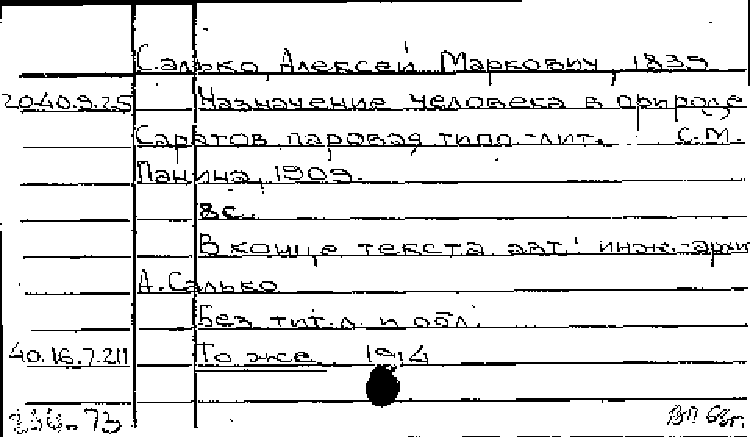 Салько, Алексей Маркович, 1839
20.40.9.25 Назначение человека в природе
Саратов, паровая типо.-лит. С.М.
Панина, 1909.
8с.
В конце текста авт: инж.-архи
А. Салько
Без тит.л. и обл.
40.16.7.211 То же 1914
234-73